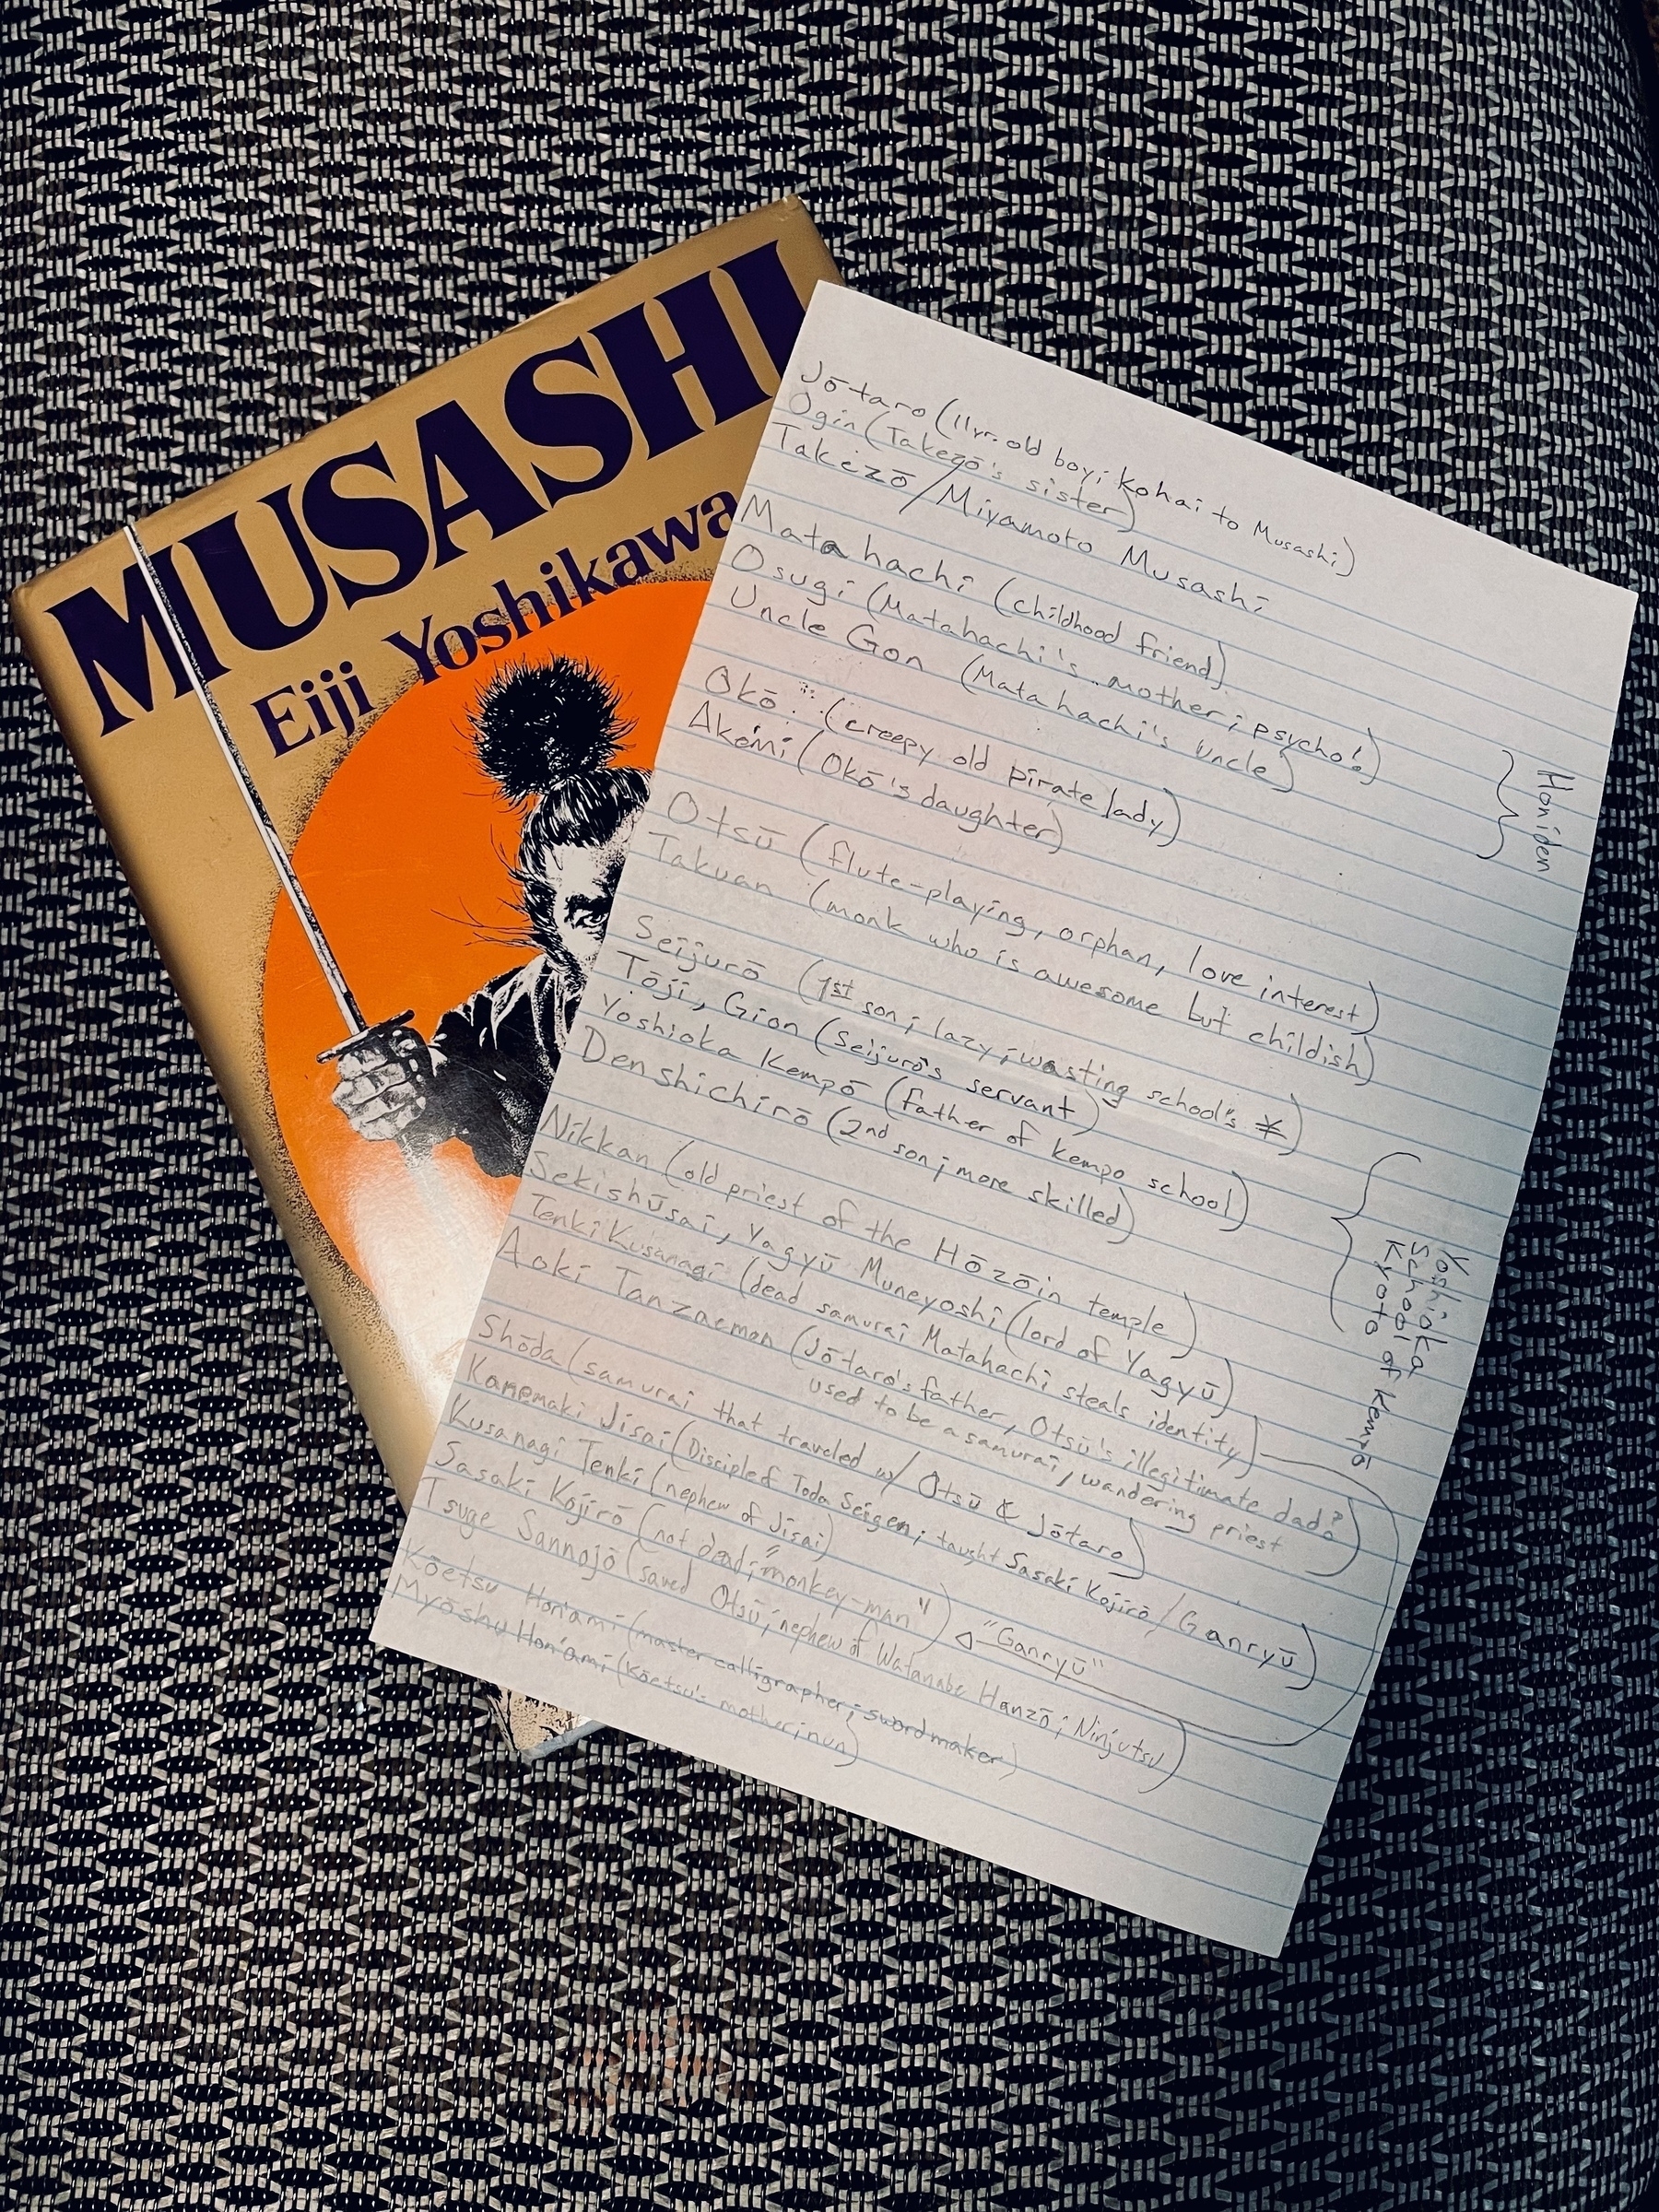 MUSASHI
Eiji Yoshikawa
Jōtaro (11yr. old boy; kohai to Musashi)
Ogin (Takezō's sister)
Takezō/Miyamoto Musashi
Matahachi (childhood friend)
Osugi (Matahachi's mother; psycho!)
Uncle Gon (Matahachi's uncle)
Honiden
Okō (creepy old pirate lady)
Akemi (Okō's daughter)
Otsū (flute-playing, orphan, love interest)
Takuan (monk who is awesome but childish)
Seijurō (1st son; lazy; wasting school's ¥)
Tōji, Gion (Seijurō's servant)
Yoshioka Kempō (father of kempo school)
Denshichirō (2nd son; more skilled)
Yoshioka
School of
Kyoto of Kempō
Nikkan (old priest of the Hōzōin temple)
Sekishūsai, Yagyū Muneyoshi (lord of Yagyū)
Tenki Kusanagi (dead samurai Matahachi steals identity)
Aoki Tanzaemon (Jōtaro's father, Otsū's illegitimate dad?
used to be a samurai, wandering priest)
Shōda (samurai that traveled w/ Otsū & Jōtaro)
Kanemaki Jisai (Discipled Toda Seigen; taught Sasaki Kojirō/Ganryū)
Kusanagi Tenki (nephew of Jisai)
Sasaki Kojirō (not dead; "monkey-man") "Ganryū"
Tsuge Sannojō (saved Otsū; nephew of Watanabe Hanzō; Ninjutsu)
Kōetsu Hon'ami (master calligrapher; swordmaker)
Myōshu Hon'ami (Kōetsu's mother; nun)